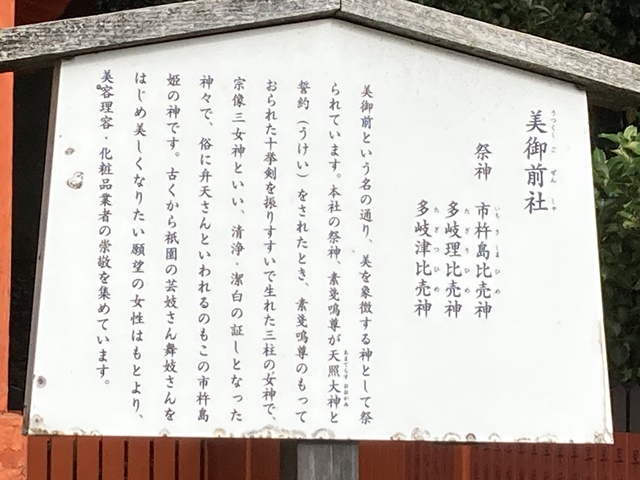 美御前社
うつくしごぜんしゃ
祭神 市杵島比売神
いちきしまひめ
多岐理比売神
たぎりひめ
多岐津比売神
たぎつひめ
美御前という名の通り、美を象徴する神として祭
られています。本社の祭神、素戔嗚尊が天照大神と
あまてらすおおかみ
誓約（うけい）をされたとき、素戔嗚尊のもって
おられた十拳剣を振りすすいで生れた三柱の女神で、
宗像三女神といい、清浄・潔白の証しとなった
神々で、俗に弁天さんといわれるのもこの市杵島
姫の神です。古くから祇園の芸妓さん舞妓さんを
はじめ美しくなりたい願望の女性はもとより、
美容理容・化粧品業者の崇敬を集めています。